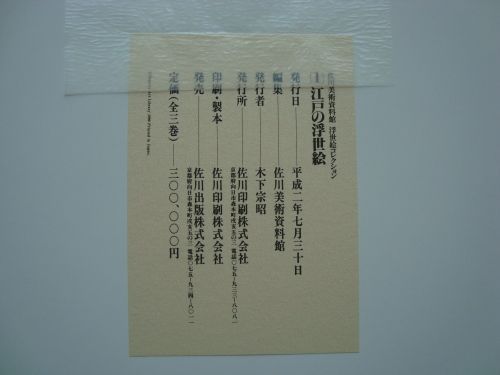 佐川美術資料館 浮世絵コレクション
江戸の浮世絵
発行日──平成二年七月三十日
編集──佐川美術資料館
発行者──木下宗昭
発行所──佐川印刷株式会社
京都府向日市森本町戌亥五の三 電話〇七五-九三三-八〇八一
印刷・製本──佐川印刷株式会社
発売──佐川出版株式会社
京都府向日市森本町戌亥五の三 電話〇七五-九三四-八〇一一
定価(全三巻)──三〇〇、〇〇〇円
Art Library 1990 Printed in Japan